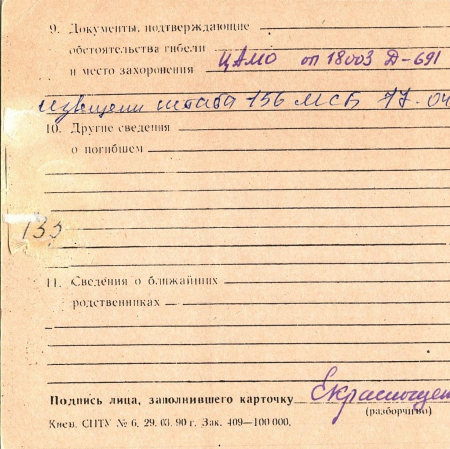 9. Документы, подтверждающие
обстоятельства гибели
и место захоронения ЦАМО оп 18003 Д-691
извещени штаба 156 МСБ 17-04
10. Другие сведения
о погибшем
133
11. Сведения о ближайших
родственниках
Подпись лица, заполнившего карточку
(разборчиво)
Киев. СПТУ № 6. 29. 03. 90 г. Зак. 409—100 000.